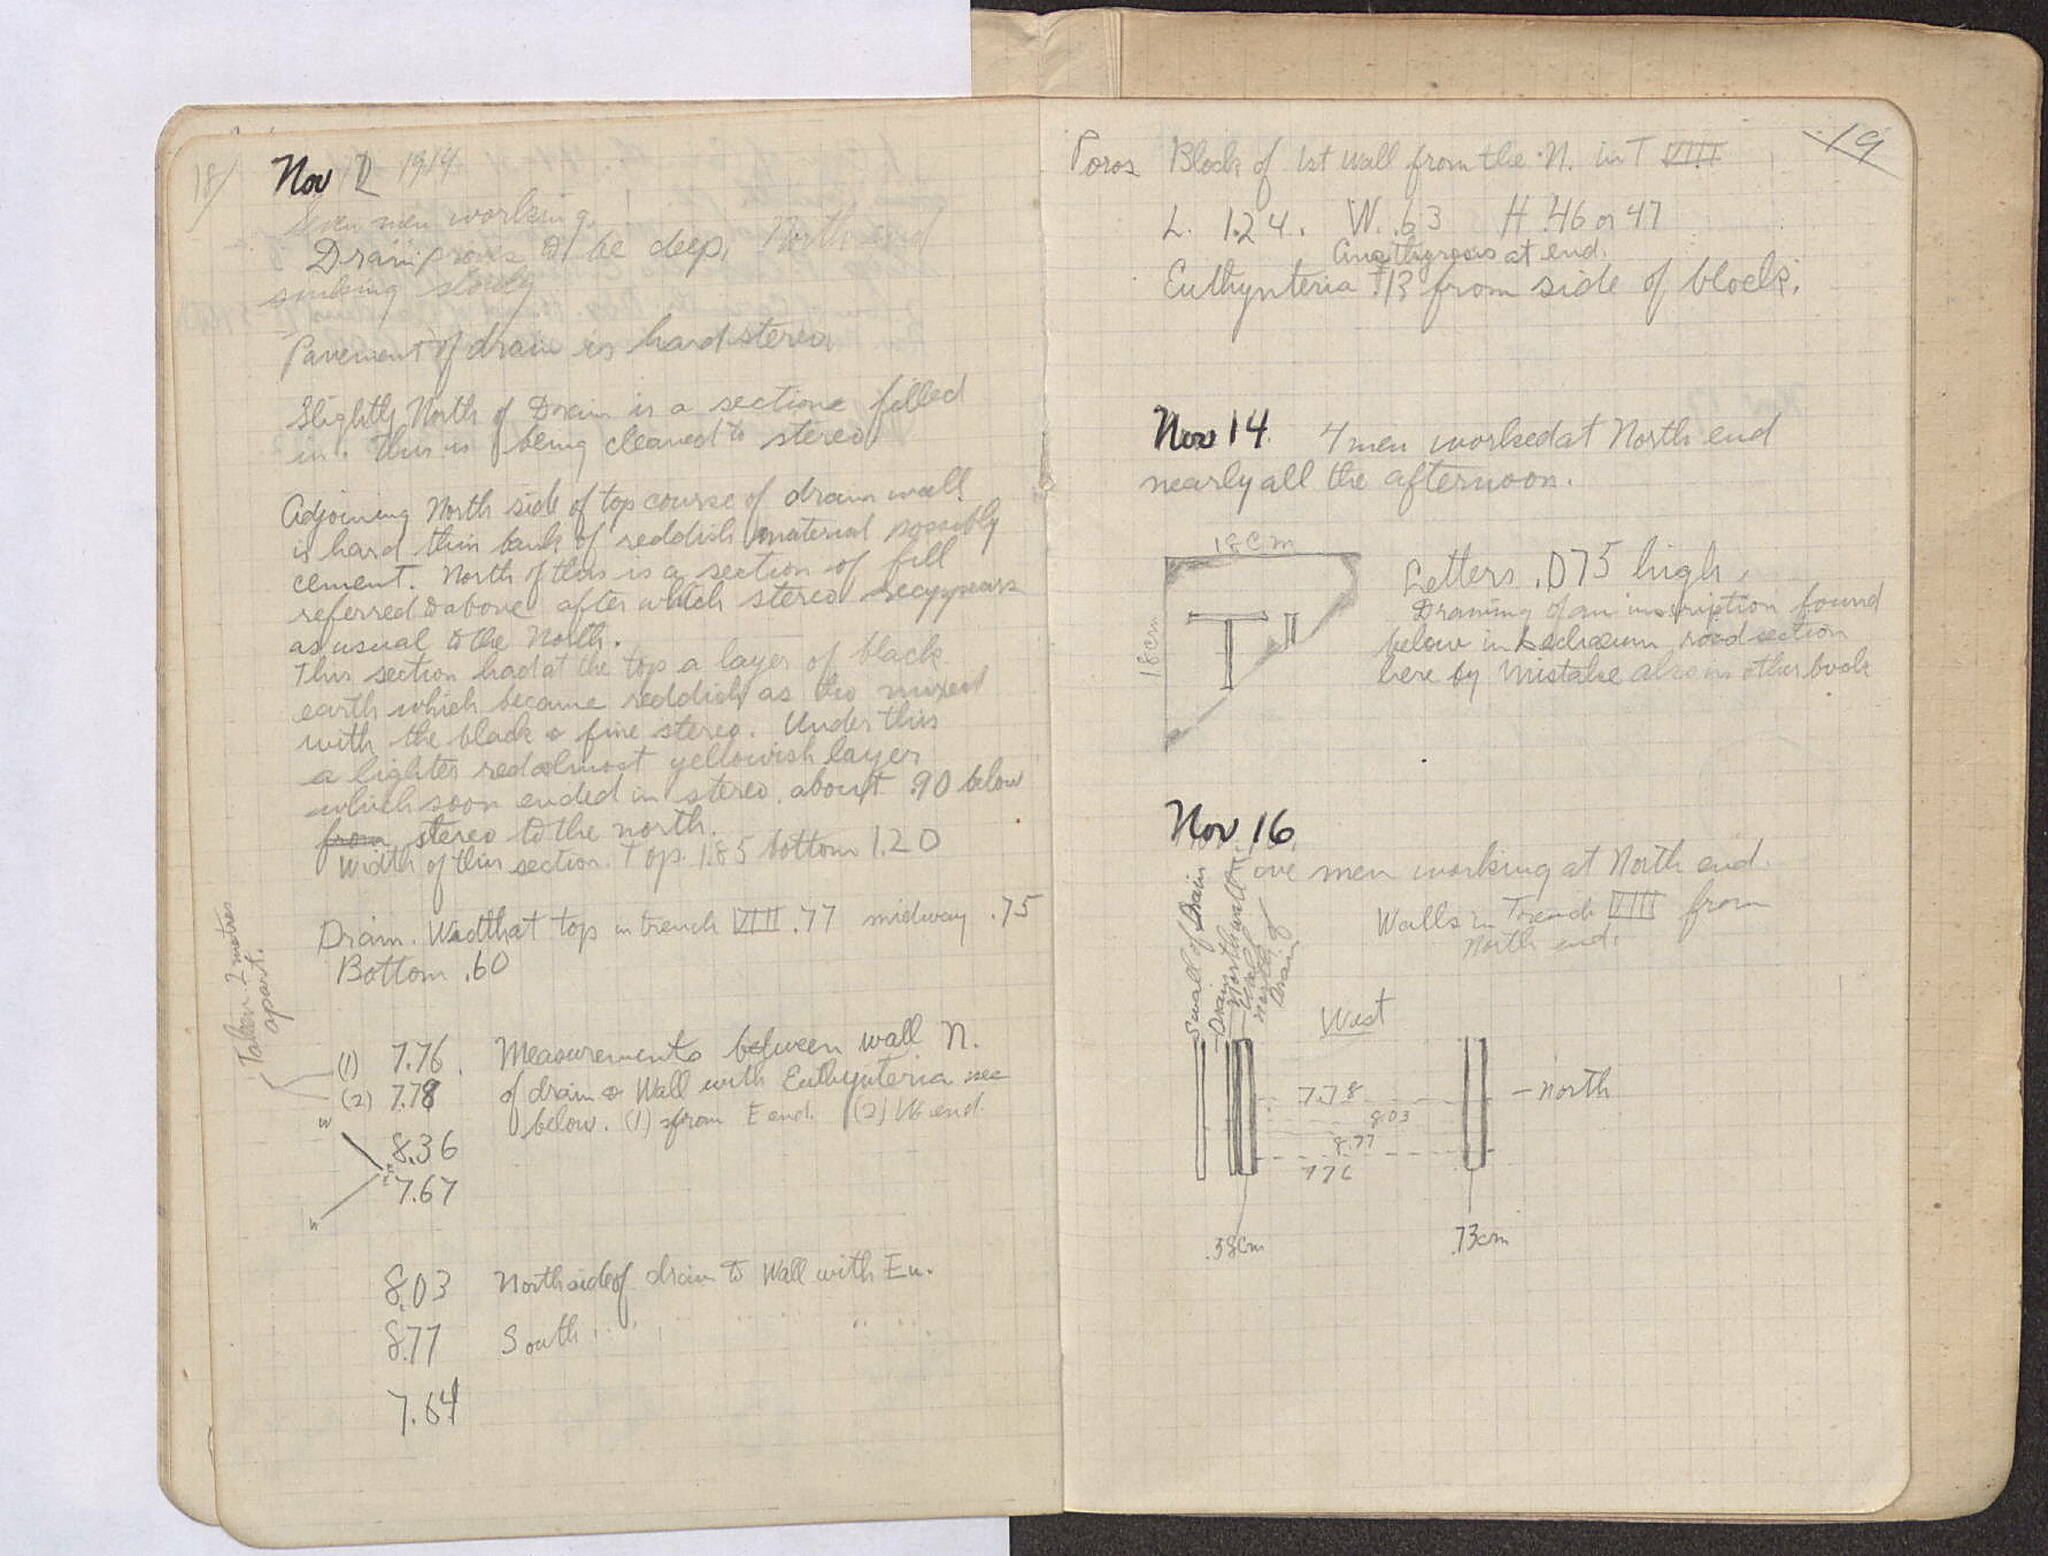 18/
Nov 12 1914
Seven men working.
Drain proves to be deep, North end
sinking slowly
Pavement of drain is hard stereo
Slightly North of Drain is a section filled
in. This is being cleaned to stereo
Adjoining North side of top course of drain wall
is hard thin bank of reddish material possibly
cement. North of this is a section of fill
referred to above after which stereo reappears
as usual to the North.
This section had at the top a layer of black
earth which became reddish as tho mixed
with the black & fine stereo. Under this
a lighter red almost yellowish layer
which soon ended in stereo. about .90 below
from stereo to the north.
Width of this section. Top. 1.85 bottom 1.20
Drain. Width at top in trench VIII .77 midway .75
Bottom .60
Taken 2 metres
apart.
(1) 7.76. Measurements between wall N.
(2) 7.78 of drain & Wall with Euthynteria see
below. (1) from E end. (2) W. end.
W
8.36
E
7.67
8.03 North side of drain to Wall with Eu.
8.77 South " " " " " "
7.64
19
Poros Block of 1st wall from the N. in T VIII
L. 1.24. W. .63 H .46 or 47
Anathyrosis at end.
Euthynteria .13 from side of block.
Nov 14. 4 men worked at North end
nearly all the afternoon.
18 Cm
18cm
T I
Letters .075 high.
Drawing of an inscription found
below in Lechaeum road section
here by mistake also in other book
Nov 16.
Five men working at North end.
Walls in Trench VIII from
North end.
S wall of Drain
Drain
North wall Dr.
Wall
North of
Drain
West
7.78
8.03
8.77
7.76
– North
.58cm
.73cm